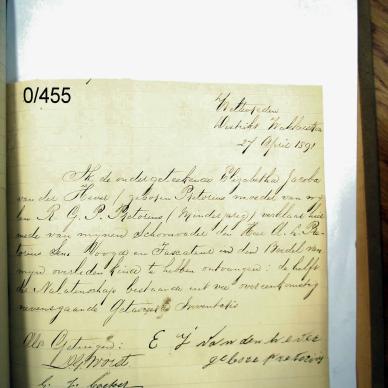 0/455
Distrikt Wakkerstroom
27 April 1891
Ik de ondergeteekende Elizabetha Jacoba
van der (geboren Pretorius moeder van mij
R. G. P. Pretorius (Minderjarig) verklaar hier
mede van mijnen Schoonvader den Heer A. L. Pre
torius Sens Voogd en in den Boedel van
mijn overleden te hebben ontvangen : de helft
bestaande uit vee overeenkomstig
nevensgaande Inventaris
Als Getuigen : E J van den
geboore Pretorius